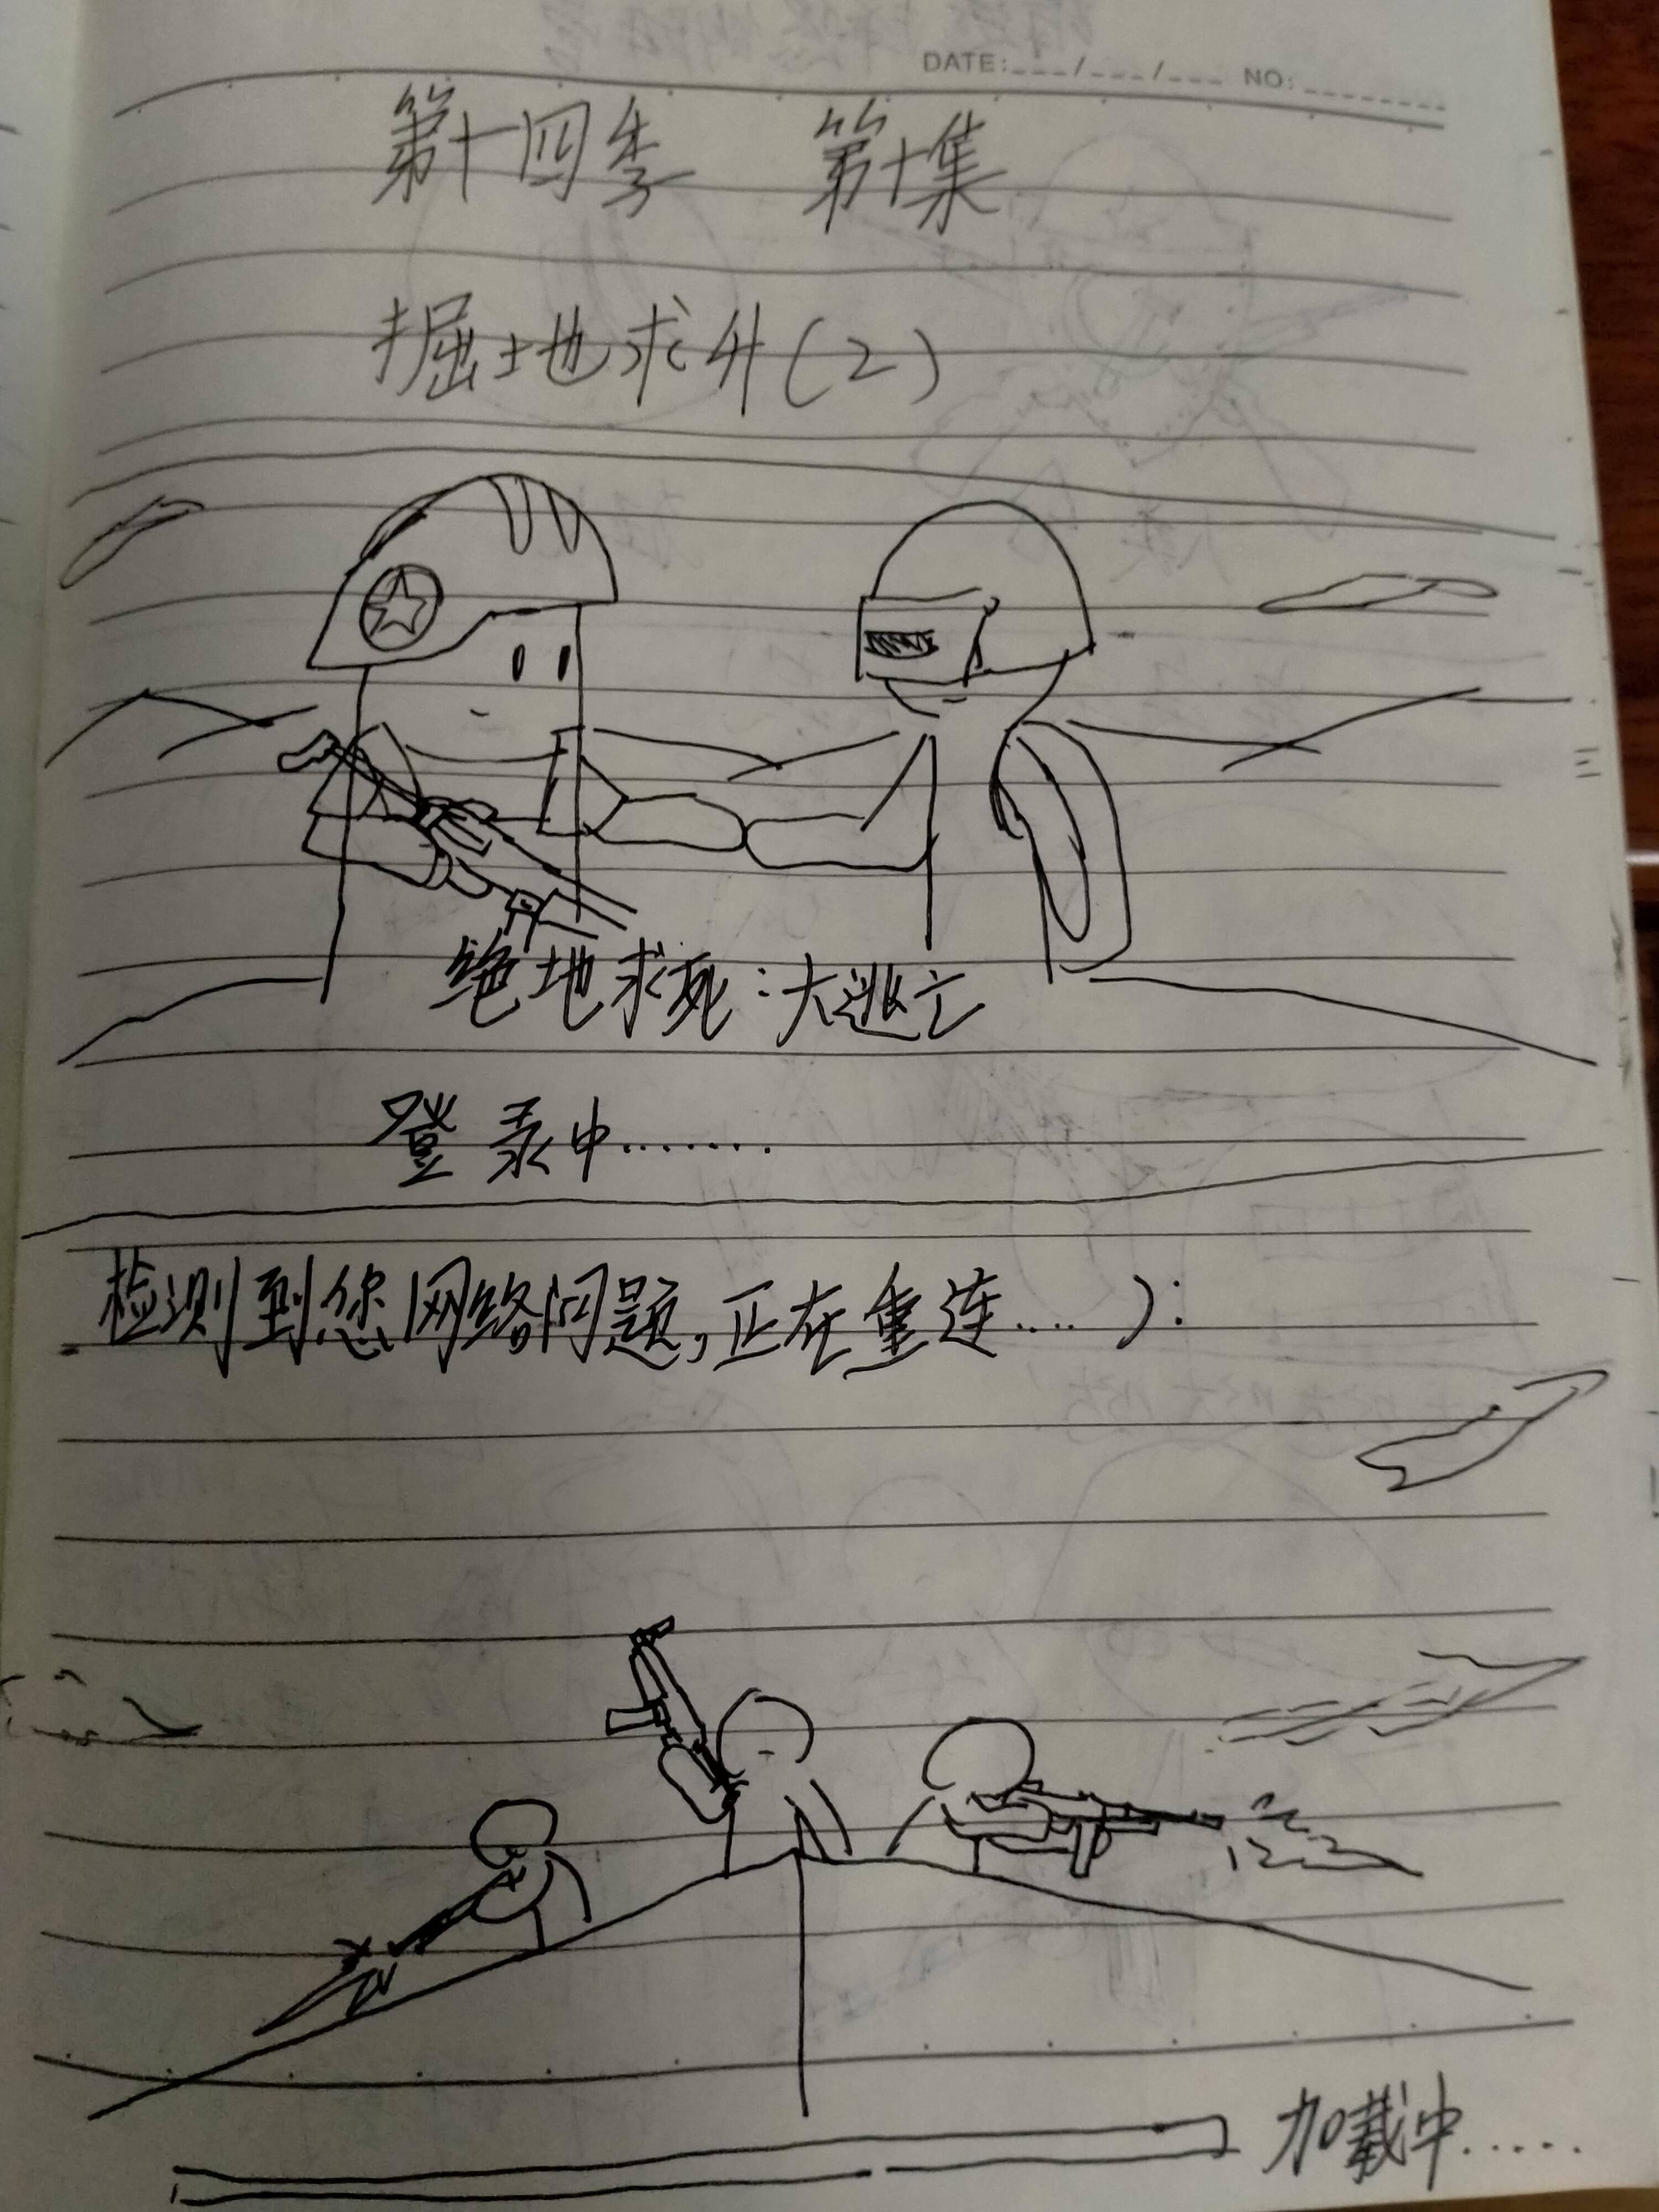 DATE:___/___/___ NO:________
第十四季 第十集
掘地求升(2)
绝地求死:大逃亡
登录中.......
检测到您网络问题,正在重连.... ):
加载中.....